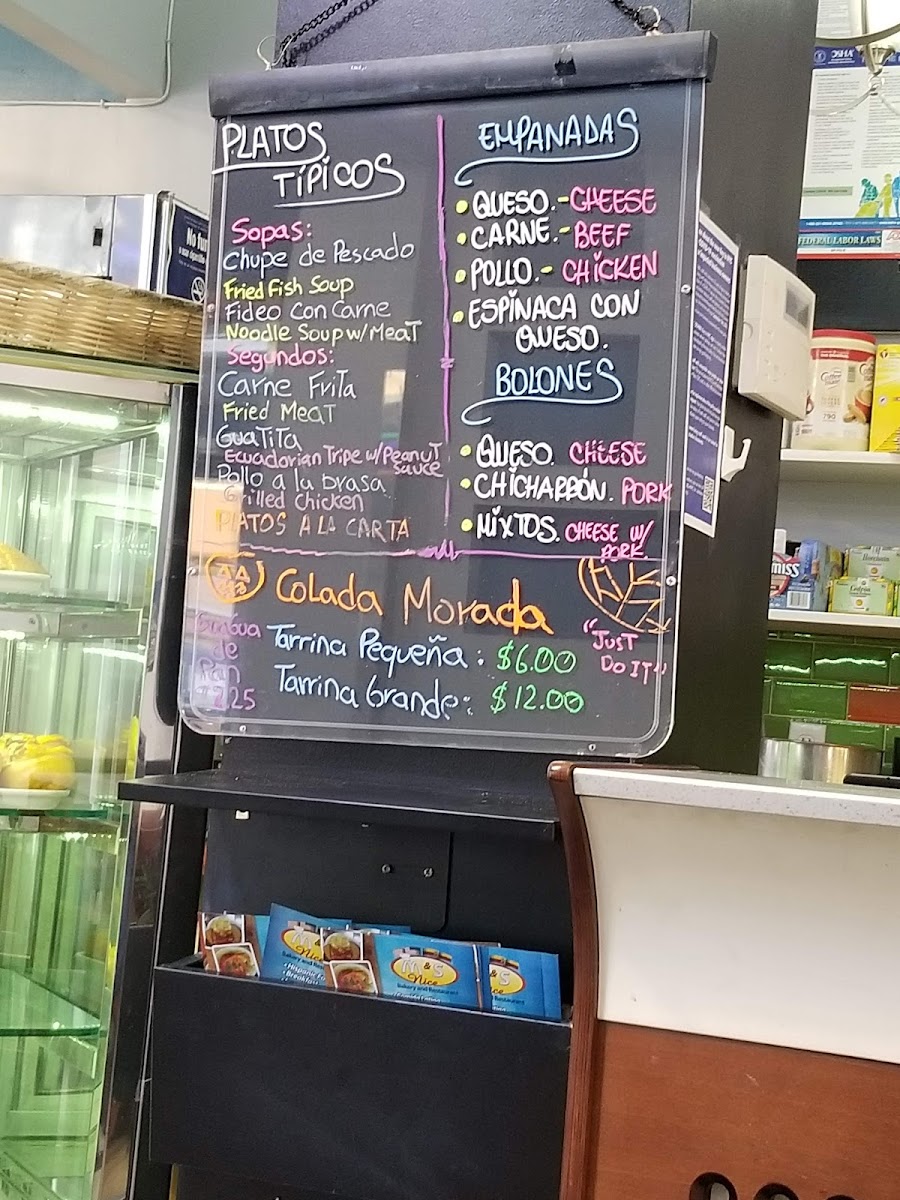 PLATOS
TÍPICOS
Sopas:
Chupe de Pescado
Fried Fish Soup
Fideo Con Carne
Noodle Soup w/ Meat
Segundos:
Carne Frita
Fried Meat
Guatita
Ecuadorian Tripe w/ Peanut
sauce
Pollo a la brasa
Grilled Chicken
PLATOS A LA CARTA
EMPANADAS
• QUESO.-CHEESE
• CARNE.-BEEF
• POLLO.-CHICKEN
• ESPINACA CON
QUESO.
BOLONES
• QUESO. CHEESE
• CHICHARRÓN. PORK
• MIXTOS. CHEESE W/
PORK
Colada Morada
de
Pan
2.25
Tarrina Pequeña: $6.00
Tarrina Grande: $12.00
"JUST
DO IT"
OSHA
FEDERAL LABOR LAWS
M & S
Nice
Bakery and Restaurant
M & S
Nice